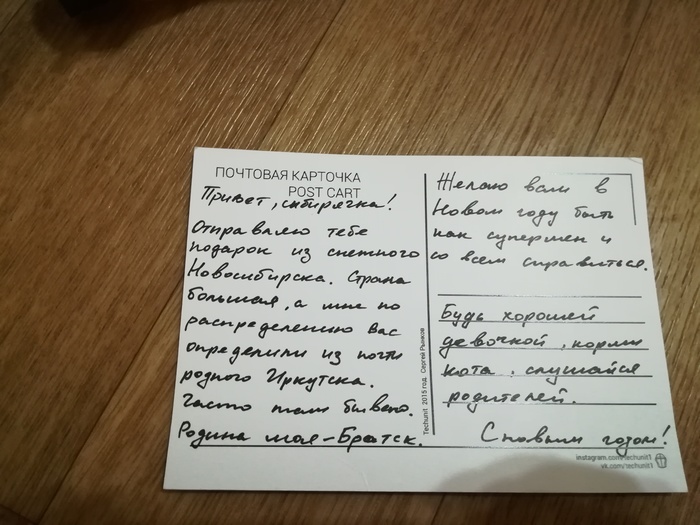 ПОЧТОВАЯ КАРТОЧКА
POST CART
Привет, сибирячка!
Отправляю тебе
подарок из снежного
Новосибирска. Страна
большая, а мне по
распределению вас
определили из почти
родного Иркутска.
Часто там бываю.
Родина моя - Братск.
Techunit 2015 год. Сергей Рыжков
Желаю вам в
Новом году быть
как супермен и
со всем справиться.
Будь хорошей
девочкой, корми
кота, слушайся
родителей.
С новым годом!
instagram.com/techunit1
vk.com/techunit1